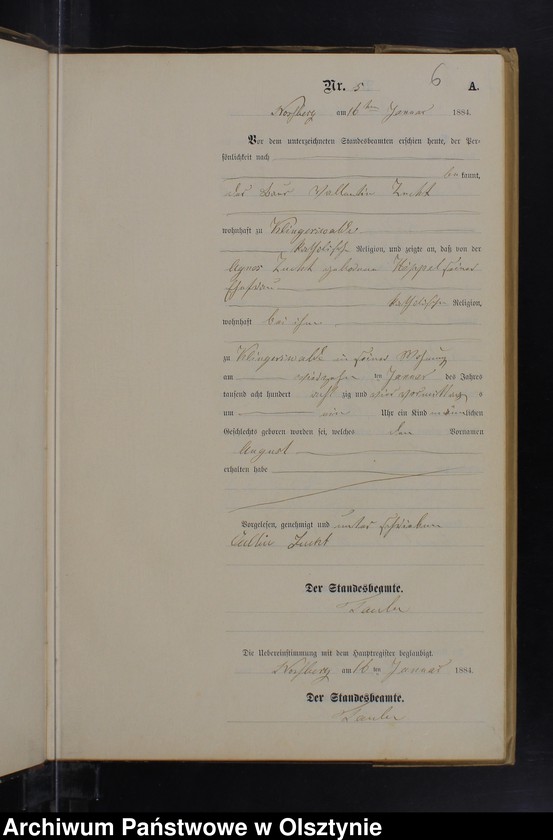 6
Nr. 5 A.
Nossberg am 16ten Januar 1884.
Vor dem unterzeichneten Standesbeamten erschien heute, der Per-
sönlichkeit nach
bekannt,
der Vallentin Zucht
wohnhaft zu Klingerswalde
katholischer Religion, und zeigte an, daß von der
Agnes Zucht geborene Höppel seiner
Ehefrau
katholischer Religion,
wohnhaft bei ihm
zu Klingerswalde in seiner Wohnung
am vierzehn ten Januar des Jahres
tausend acht hundert acht zig und vier vormittags
um ein Uhr ein Kind männlichen
Geschlechts geboren worden sei, welches den Vornamen
August
erhalten habe
Vorgelesen, genehmigt und unterschrieben
Zucht
Der Standesbeamte.
Die Uebereinstimmung mit dem Hauptregister beglaubigt.
Nossberg am 16ten Januar 1884.
Der Standesbeamte.
Archiwum Państwowe w Olsztynie